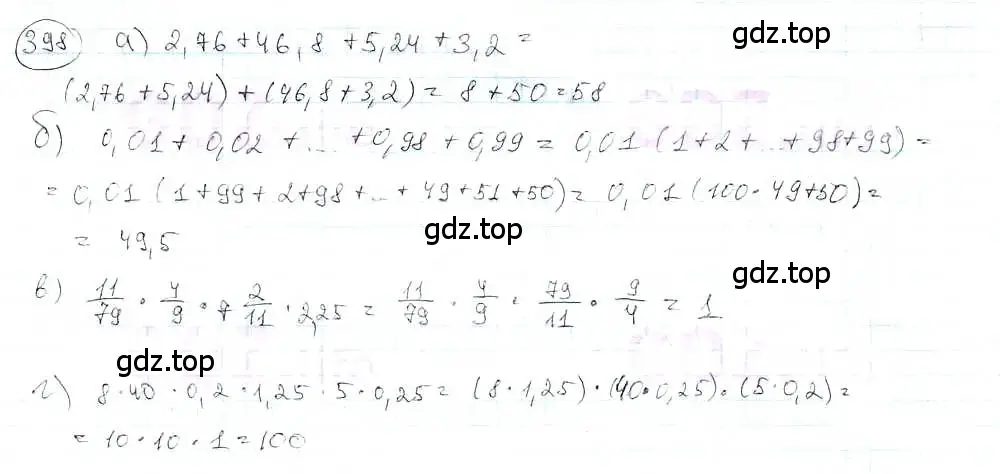 398 а) 2,76 + 46,8 + 5,24 + 3,2 =
(2,76 + 5,24) + (46,8 + 3,2) = 8 + 50 = 58
б) 0,01 + 0,02 + ... + 0,98 + 0,99 = 0,01 (1 + 2 + ... + 98 + 99) =
= 0,01 (1 + 99 + 2 + 98 + ... + 49 + 51 + 50) = 0,01 (100 · 49 + 50) =
= 49,5
gdz.top gdz.top
в) 11/79 · 4/9 · 7 2/11 · 2,25 = 11/79 · 4/9 · 79/11 · 9/4 = 1
gdz.top gdz.top
г) 8 · 40 · 0,2 · 1,25 · 5 · 0,25 = (8 · 1,25) · (40 · 0,25) · (5 · 0,2) =
= 10 · 10 · 1 = 100